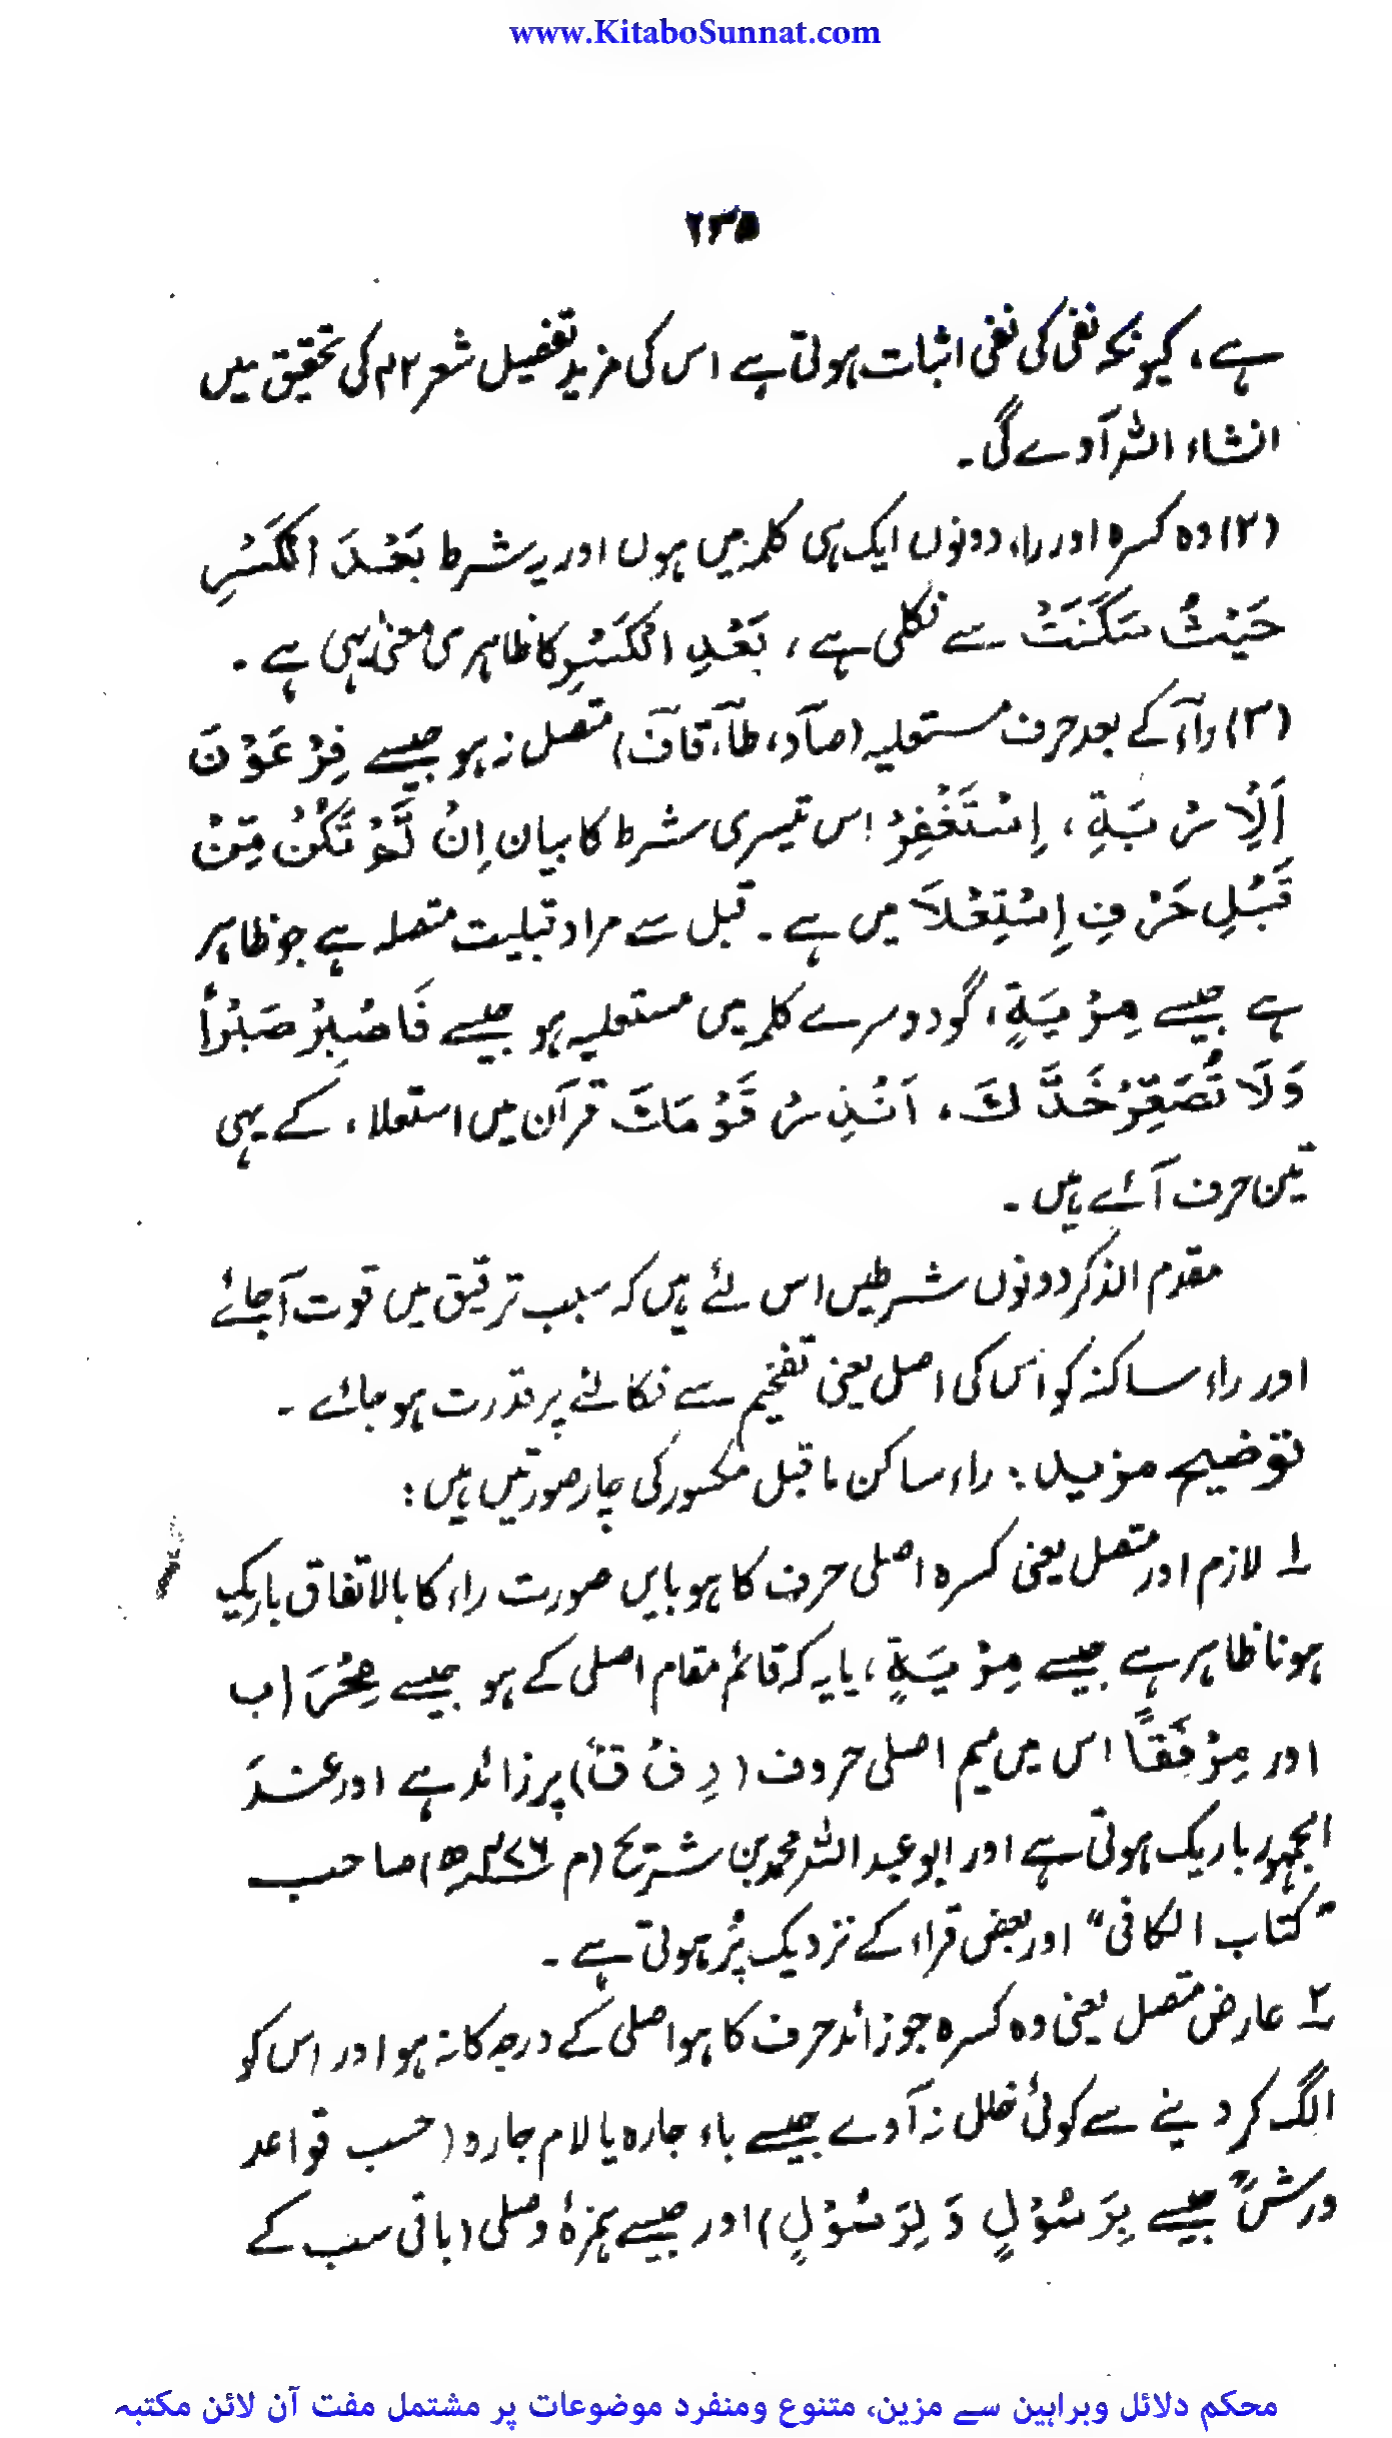 www.KitaboSunnat.com
۲۳۵
ہے، کیونکہ نفی کی نفی اثبات ہوتی ہے اس کی مزید تفصیل شعر ۴۲ کی تحقیق میں
انشاء اللہ آوے گی۔
(۲) وہ کسرہ اور راء دونوں ایک ہی کلمہ میں ہوں اور یہ شرط بَعْدَ الْكَسْرِ
حَيْثُ سَكَنَتْ سے نکلی ہے، بَعْدِ الْكَسْرِ کا ظاہری معنیٰ یہی ہے۔
(۳) رآء کے بعد حرف مستعلیہ (صآد، طآء، قآف) متصل نہ ہو جیسے فِرْعَوْنَ
اَلْاِرْبَةِ، اِسْتَغْفِرْ اس تیسری شرط کا بیان اِنْ لَّمْ تَكُنْ مِّنْ
قَبْلِ حَرْفِ اِسْتِعْلَا میں ہے۔ قبل سے مراد قبلیت متصلہ ہے جو ظاہر
ہے جیسے مِرْيَةٍ، گو دوسرے کلمہ میں مستعلیہ ہو جیسے فَاصْبِرْ صَبْرًا
وَلَا تُصَعِّرْ خَدَّكَ، اَنْذِرْ قَوْمَكَ قرآن میں استعلاء کے یہی
تین حرف آئے ہیں۔
مقدم الذکر دونوں شرطیں اس لئے ہیں کہ سبب ترقیق میں قوت آجائے
اور راء ساکنہ کو اس کی اصل یعنی تفخیم سے نکالنے پر قدرت ہو جائے۔
توضیح مزید: راء ساکن ما قبل مکسور کی چار صورتیں ہیں:
۱ لازم اور متصل یعنی کسرہ اصلی حرف کا ہو بایں صورت راء کا بالاتفاق باریک
ہونا ظاہر ہے جیسے مِرْيَةٍ، یا یہ کہ قائم مقام اصلی کے ہو جیسے مِحْرَاب
اور مِرْفَقًا اس میں میم اصلی حروف (رِ فْ قْ) پر زائد ہے اور عند
الجمہور باریک ہوتی ہے اور ابو عبد اللہ محمد بن شریح (م ۴۷۶ھ) صاحب
"کتاب الکافی" اور بعض قراء کے نزدیک پُر ہوتی ہے۔
۲ عارض متصل یعنی وہ کسرہ جو زائد حرف کا ہو اصلی کے درجہ کا نہ ہو اور اس کو
الگ کر دینے سے کوئی خلل نہ آوے جیسے باء جارہ یا لام جارہ (حسب قواعد
ورشؒ جیسے بِرَسُوْلٍ وَ لِرَسُوْلٍ) اور جیسے ہمزۂ وصلی (باقی سب کے
محکم دلائل وبراہین سے مزین، متنوع ومنفرد موضوعات پر مشتمل مفت آن لائن مکتبہ